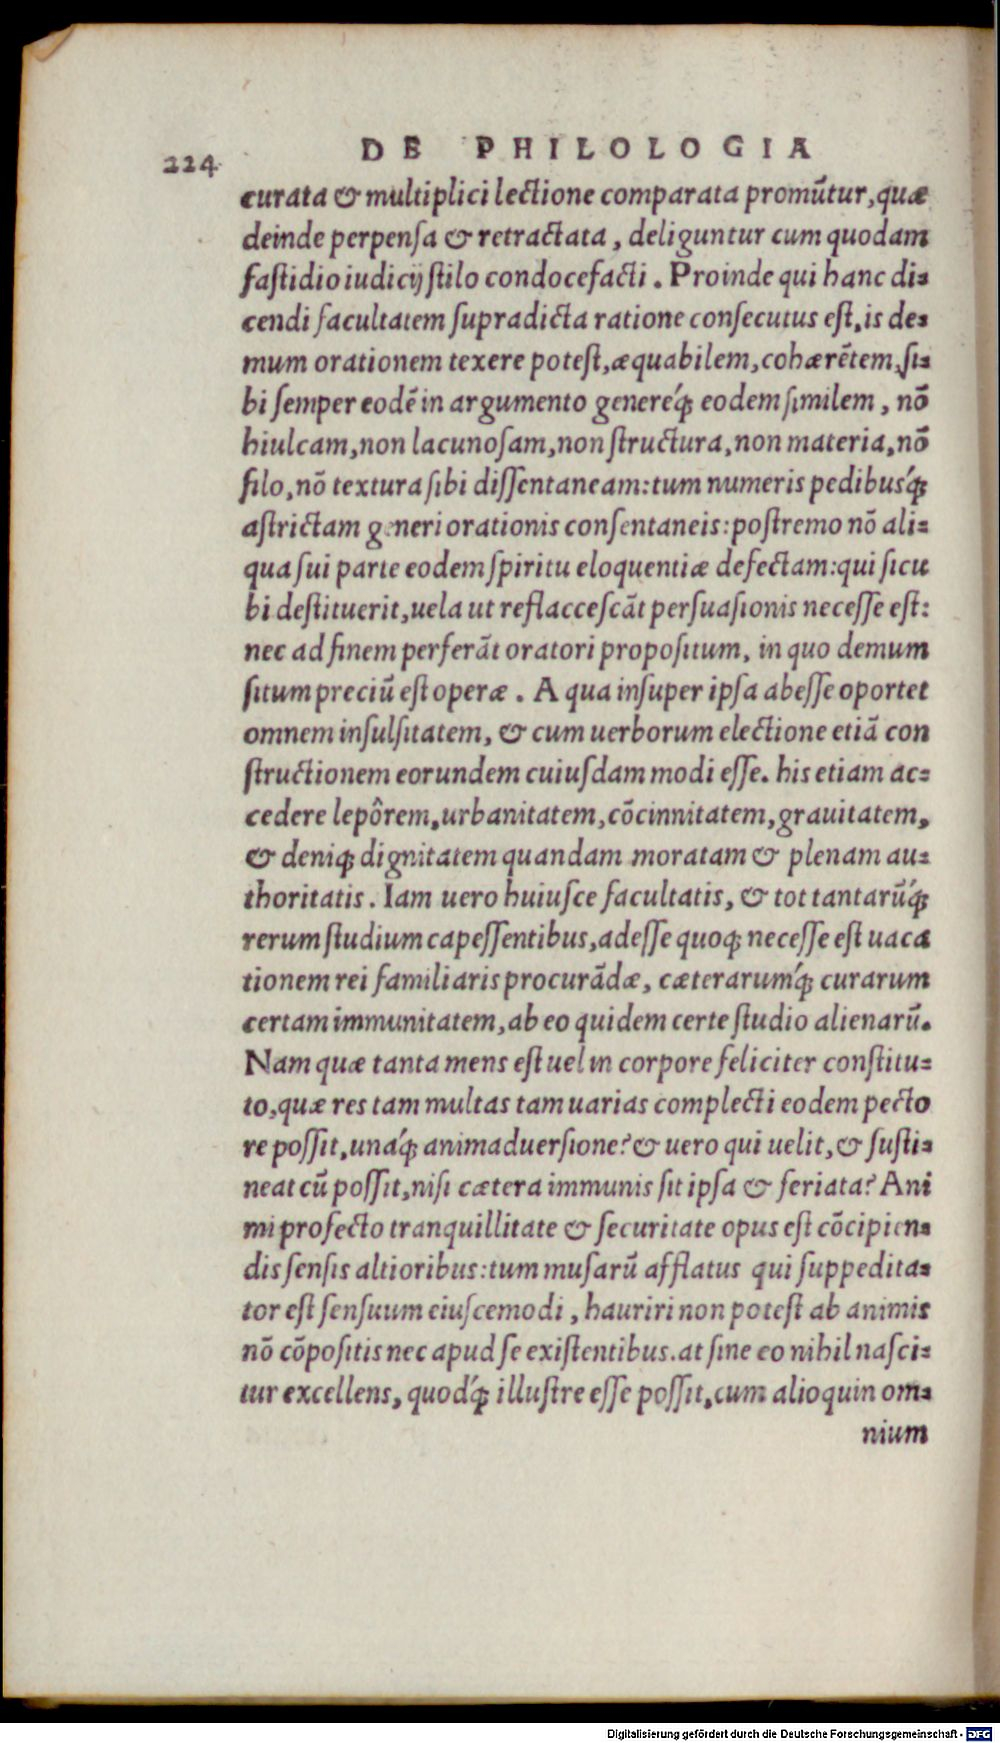 DE PHILOLOGIA
224
curata & multiplici lectione comparata promũtur, quæ
deinde perpenſa & retractata, deliguntur cum quodam
faſtidio iudicij ſtilo condocefacti. Proinde qui hanc di⸗
cendi facultatem ſupradicta ratione conſecutus eſt, is de⸗
mum orationem texere poteſt, æquabilem, cohærẽtem, ſi⸗
bi ſemper eodẽ in argumento generéq́; eodem ſimilem, nõ
hiulcam, non lacunoſam, non ſtructura, non materia, nõ
filo, nõ textura ſibi diſſentaneam: tum numeris pedibusq́;
aſtrictam generi orationis conſentaneis: poſtremo nõ ali⸗
qua ſui parte eodem ſpiritu eloquentiæ defectam: qui ſicu
bi deſtituerit, uela ut reflacceſcãt perſuaſionis neceſſe eſt:
nec ad finem perferãt oratori propoſitum, in quo demum
ſitum preciũ eſt operæ. A qua inſuper ipſa abeſſe oportet
omnem inſulſitatem, & cum uerborum electione etiã con
ſtructionem eorundem cuiuſdam modi eſſe. his etiam ac⸗
cedere lepôrem, urbanitatem, cõcinnitatem, grauitatem,
& deniq; dignitatem quandam moratam & plenam au⸗
thoritatis. Iam uero huiuſce facultatis, & tot tantarũq́;
rerum ſtudium capeſſentibus, adeſſe quoq; neceſſe eſt uaca
tionem rei familiaris procurãdæ, cæterarumq́; curarum
certam immunitatem, ab eo quidem certe ſtudio alienarũ.
Nam quæ tanta mens eſt uel in corpore feliciter conſtitu⸗
to, quæ res tam multas tam uarias complecti eodem pecto
re poſſit, unáq́; animaduerſione? & uero qui uelit, & ſuſti⸗
neat cũ poſſit, niſi cætera immunis ſit ipſa & feriata? Ani
mi profecto tranquillitate & ſecuritate opus eſt cõcipien⸗
dis ſenſis altioribus: tum muſarũ afflatus qui ſuppedita⸗
tor eſt ſenſuum eiuſcemodi, hauriri non poteſt ab animis
nõ cõpoſitis nec apud ſe exiſtentibus. at ſine eo nihil naſci⸗
tur excellens, quodq́; illuſtre eſſe poſſit, cum alioquin om⸗
nium
Digitalisierung gefördert durch die Deutsche Forschungsgemeinschaft - DFG